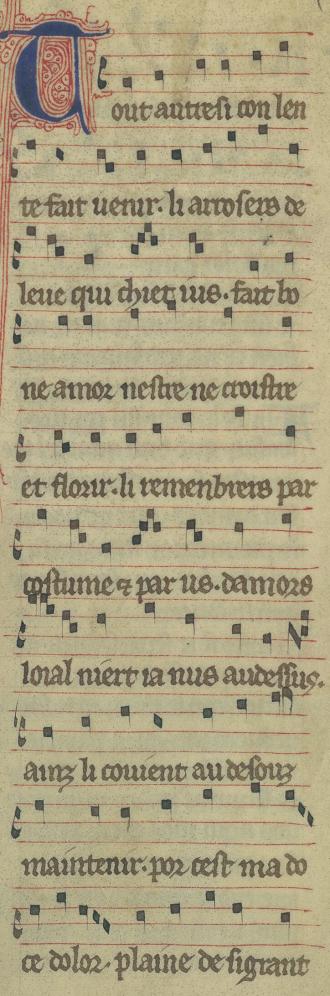 Tout autresi con len
te fait uenir. li arrosers de
leue qui chiet ius. fait bo
ne amor nestre ne croistre
et florir. li remenbrers par
costume ⁊ par us. damors
loial niert ia nus audessus.
ainz li couient au desouz
maintenir. por cest ma do
ce dolor. plaine de si grant